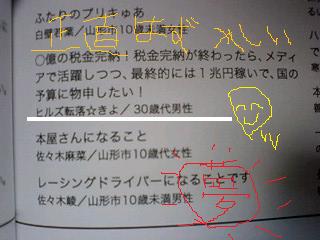 ふたりのプリキュあ
正直はずかしい
山形市10歳未満女性
〇億の税金完納！税金完納が終わったら、メディ
アで活躍しつつ、最終的には１兆円稼いで、国の
予算に物申したい！
ヒルズ転落☆きよ／30歳代男性
本屋さんになること
佐々木麻菜／山形市10歳代女性
レーシングドライバーになることです
佐々木崚／山形市10歳未満男性
夢